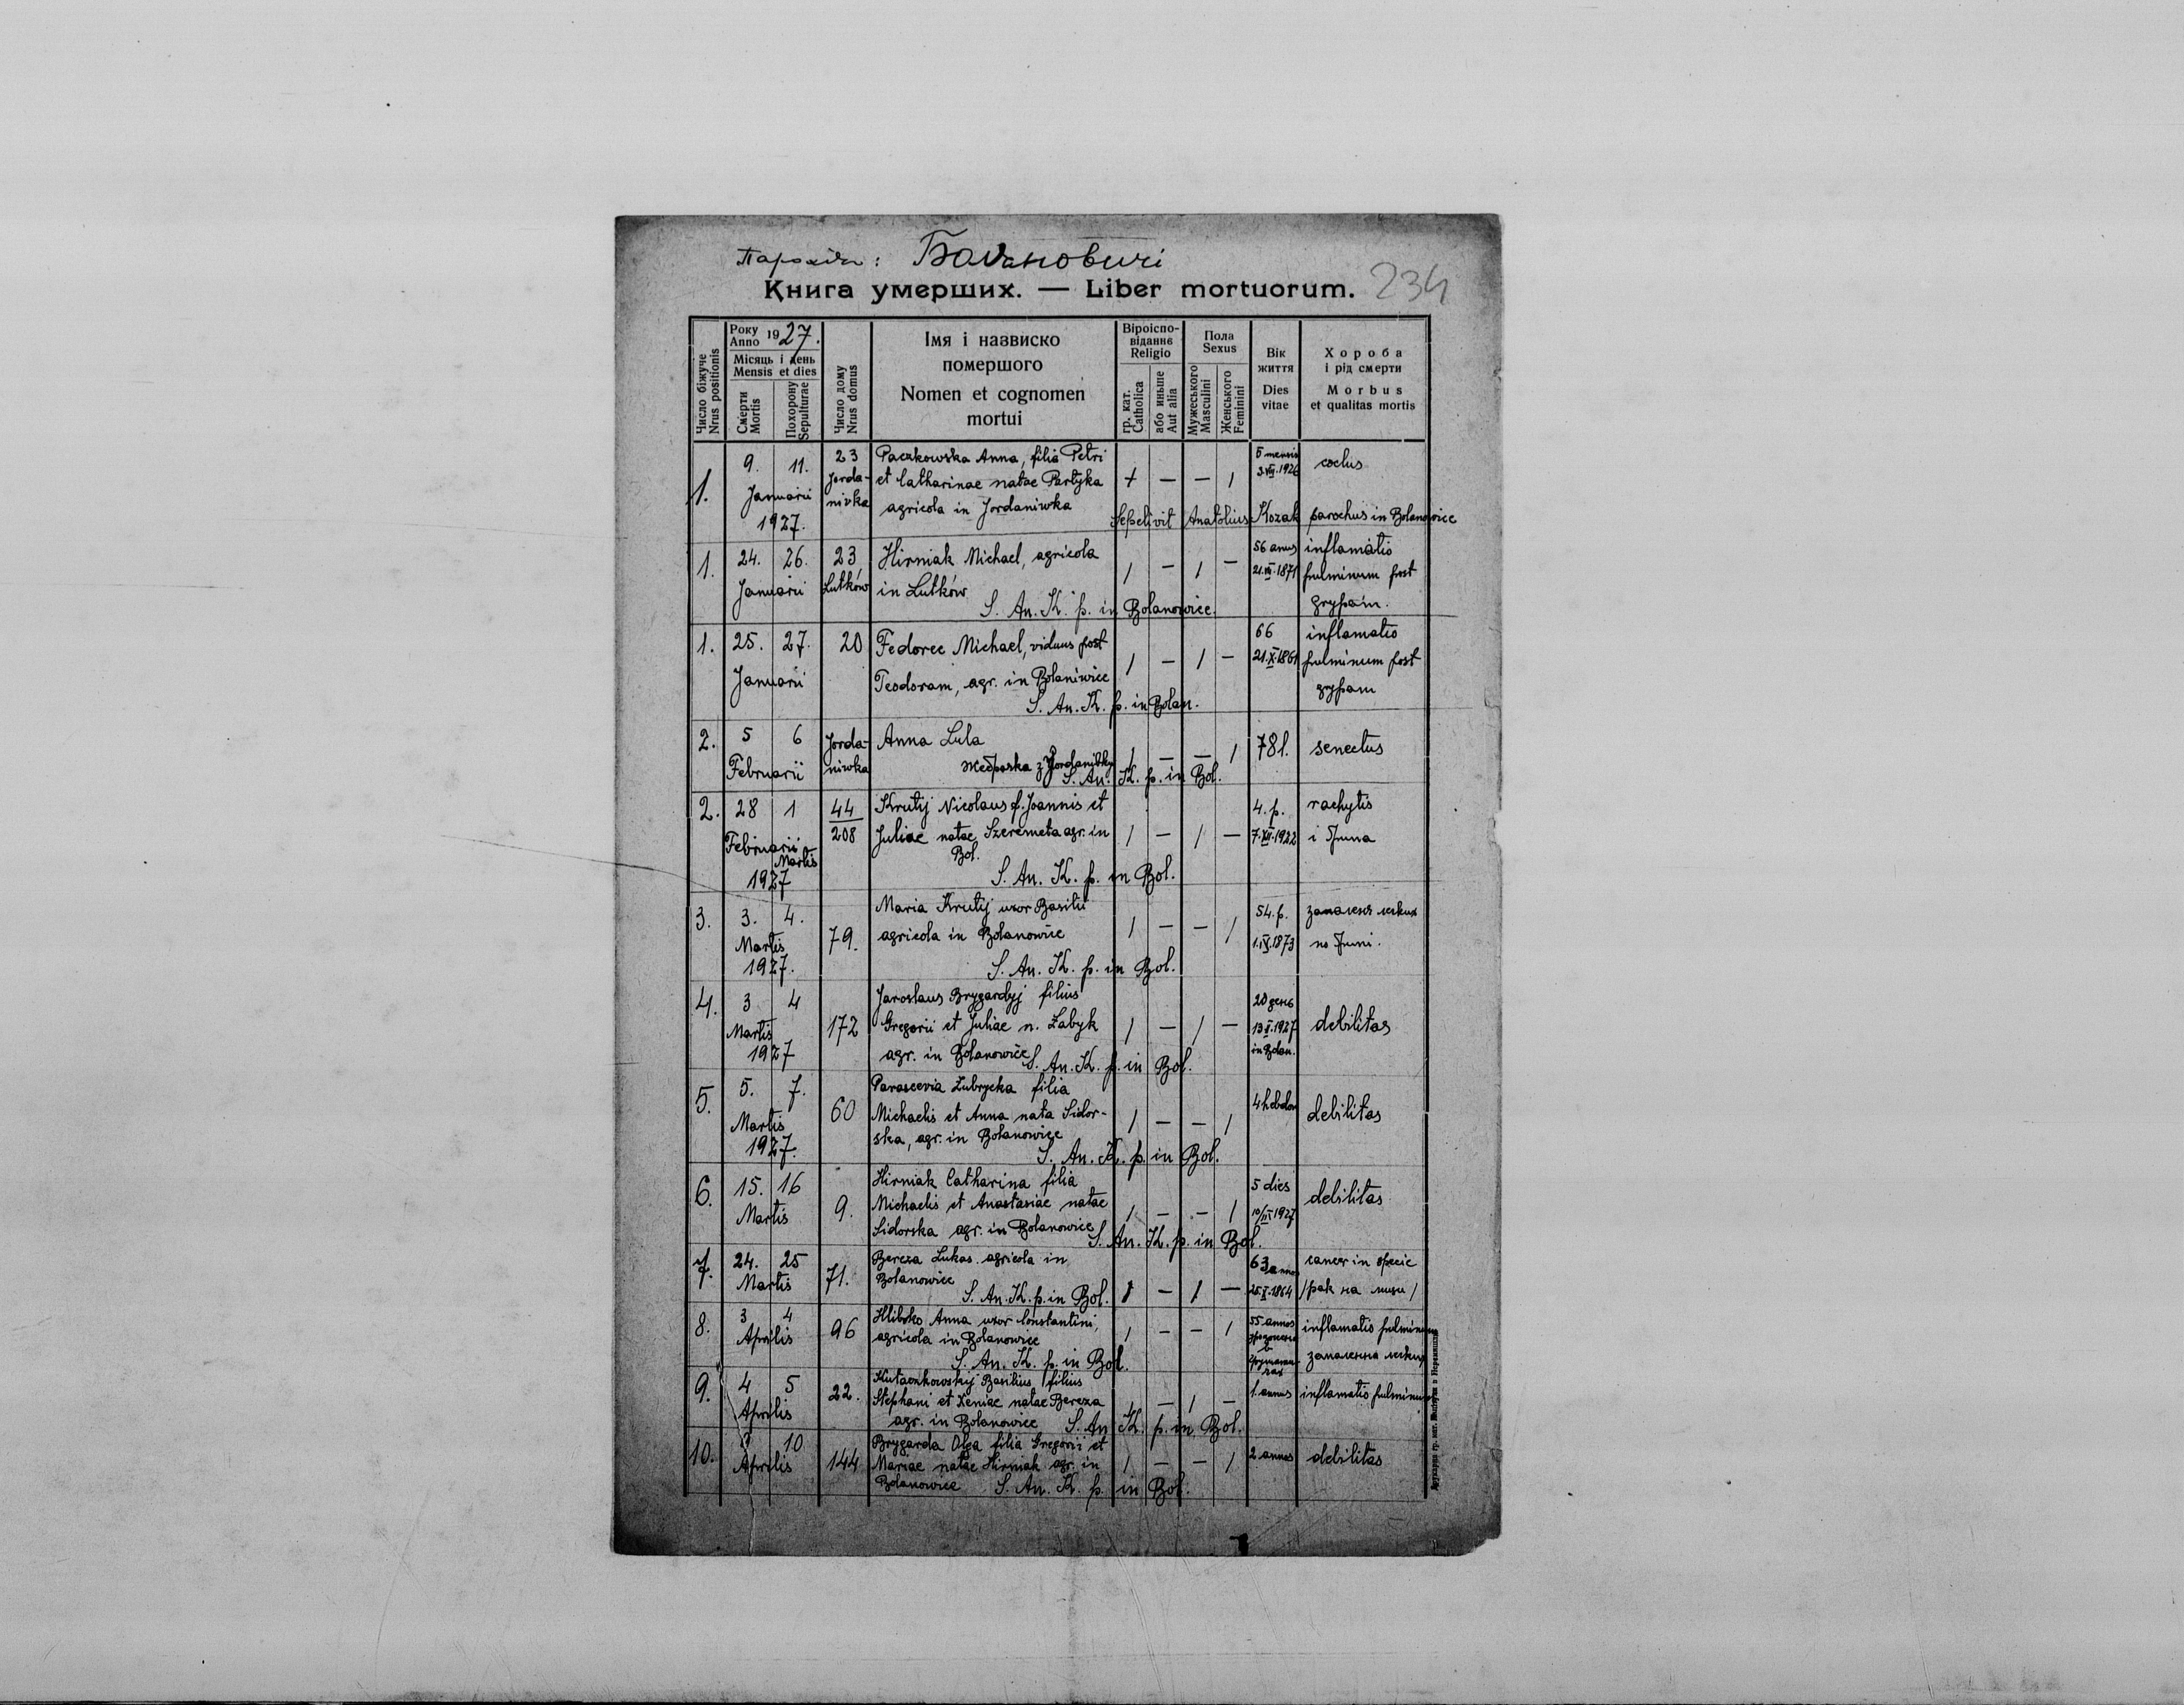 Парохія: Болановичі
Книга умерших. — Liber mortuorum. 234
Число біжуче
Nrus positionis
Року
Anno 1927.
Місяць і день
Mensis et dies
Смерти
Mortis
Похорону
Sepulturae
Число дому
Nrus domus
Імя і назвиско
помершого
Nomen et cognomen
mortui
Віроіспо-
віданнє
Religio
гр. кат.
Catholica
або иньше
Aut alia
Пола
Sexus
Мужеського
Masculini
Женського
Feminini
Вік
життя
Dies
vitae
Хороба
і рід смерти
Morbus
et qualitas mortis
1. 9. 11. Januarii 1927. 23 Jorda-
nivka
Paczkowska Anna, filia Petri
et Catharinae natae Partyka
agricola in Jordaniwka
+ — — /
5 mensis
3.VIII.1926
coclus
Sepelivit Anatolius Kozak parochus in Bolanowice
1. 24. 26. Januarii 23 Lutków
Hirniak Michael, agricola
in Lutków
/ — / —
56 anus
21.XI.1871
inflamatio
pulminum post
grypam.
S. An. K. p. in Bolanowice.
1. 25. 27. Januarii 20
Fedorec Michael, viduus post
Teodoram, agr. in Bolaniwice
/ — / —
66
21.X.1861
inflamatio
pulminum post
grypam
S. An. K. p. in Bolan.
2. 5 6 Februarii Jorda-
niwka
Anna Lula
з Jordaniwky
/ — — /
78 l.
senectus
S. An. K. p. in Bol.
2. 28 1 Februarii Martis 1927 44
208
Krutij Nicolaus f. Joannis et
Juliae natae Szeremeta agr. in
Bol.
/ — / —
4. р.
7.XII.1922
rachytis
і Ґрипа
S. An. K. p. in Bol.
3. 3. 4. Martis 1927. 79.
Maria Krutij uxor Basilii
agricola in Bolanowice
/ — — /
54. р.
1.IX.1873
запаленя легких
по Ґрипі.
S. An. K. p. in Bol.
4. 3 4 Martis 1927 172
Jaroslaus Brygardyj filius
Gregorii et Juliae n. Żabyk
agr. in Bolanowice
/ — / —
20 день
13.II.1927
in Bolan.
debilitas
S. An. K. p. in Bol.
5. 5. 7. Martis 1927. 60
Parascevia Zubrycka filia
Michaelis et Anna nata Sidor-
ska, agr. in Bolanowice
/ — — /
4 hebdom
debilitas
S. An. K. p. in Bol.
6. 15. 16 Martis 9.
Hirniak Catharina filia
Michaelis et Anastasiae natae
Sidorska agr. in Bolanowice
/ — — /
5 dies
10/III 1927
debilitas
S. An. K. p. in Bol.
7. 24. 25 Martis 71.
Bereza Lukas. agricola in
Bolanowice
/ — / —
63 annos
25.X.1864
cancer in specie
/рак на лиці/
S. An. K. p. in Bol.
8. 3 4 Aprilis 96
Hlibko Anna uxor Constantini,
agricola in Bolanowice
/ — — /
55 annos
inflamatio pulminum
запалення легких
S. An. K. p. in Bol.
9. 4 5 Aprilis 22.
Basilius filius
Stephani et Xeniae natae Bereza
agr. in Bolanowice
/ — / —
1. annus
inflamatio pulminum
S. An K. p. in Bol.
10. 10 Aprilis 144
Brygarda Olga filia Gregorii et
Mariae natae Hirniak agr. in
Bolanowice
/ — — /
2 annos
debilitas
S. An. K. p. in Bol.